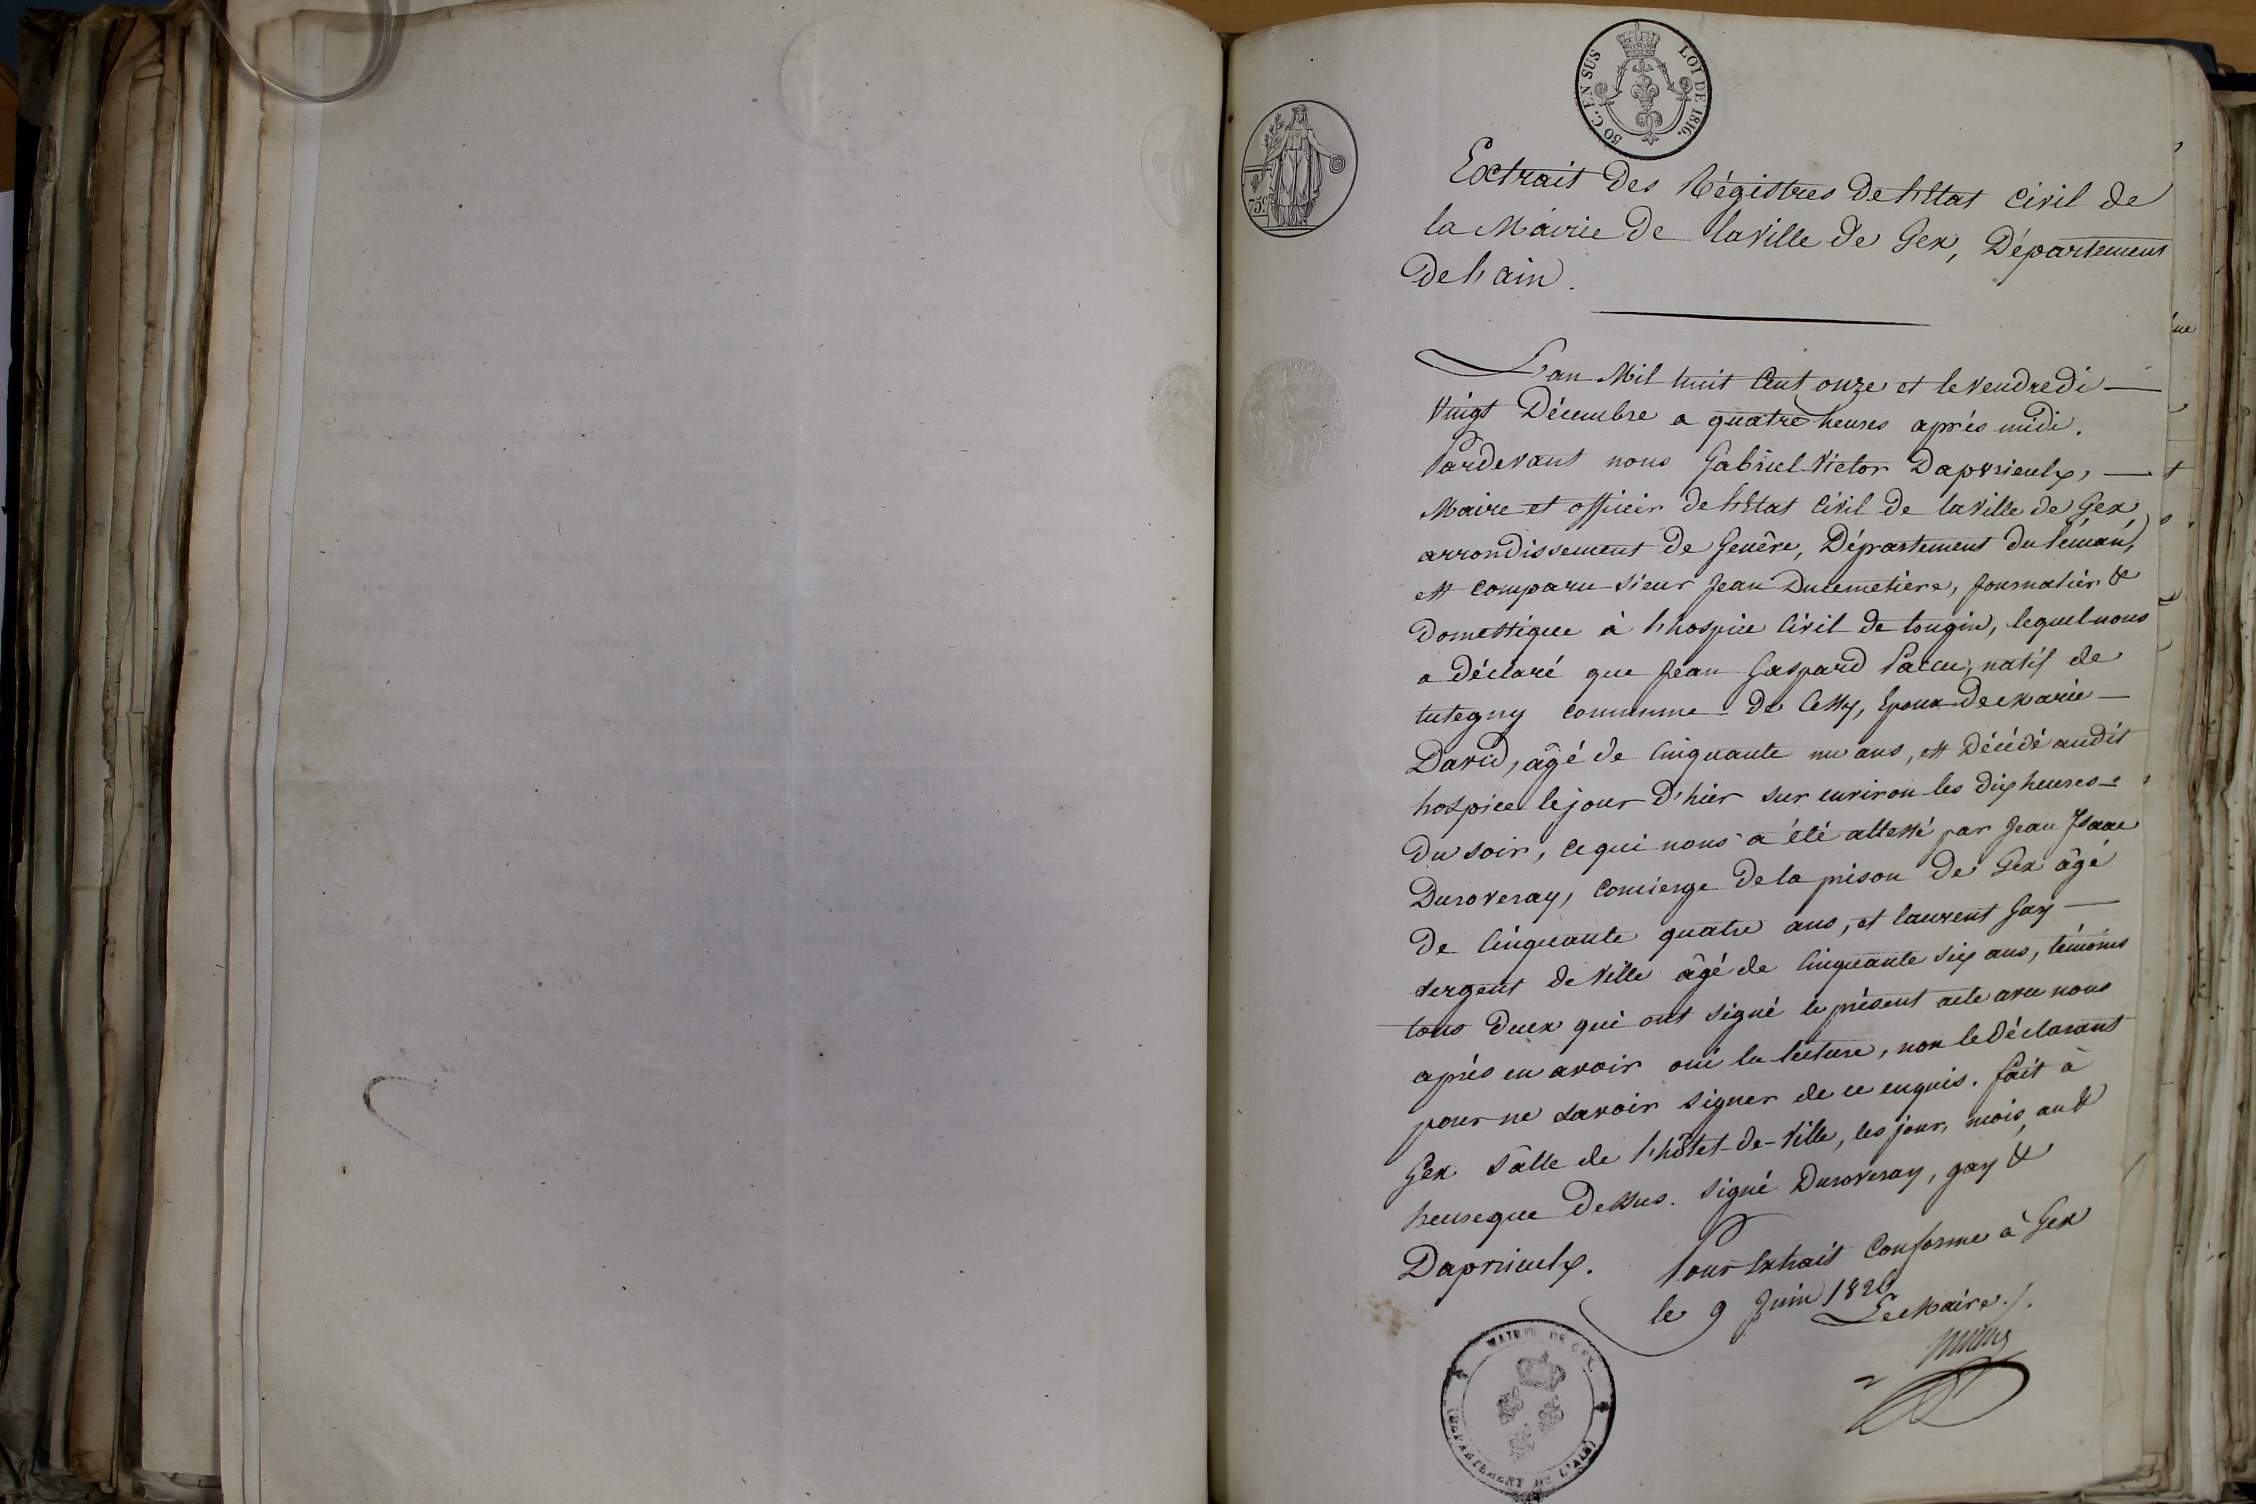 50 C. EN SUS LOI DE 1816.
75c
Extrait des Régistres de l'Etat Civil de
la Mairie de la Ville de Gex, Département
de l'ain.
L'an Mil huit Cent onze et le vendredi
vingt Décembre a quatre heures après midi.
Pardevant nous Gabriel Victor Dapvrieulx,
Maire et officier de l'Etat Civil de la Ville de Gex,
arrondissement de Genêve, Département du Léman,
est comparu sieur Jean Ducimetiere, journalier &
domestique à l'hospice Civil de tougin, lequel nous
a déclaré que Jean Gaspard Paccu, natif de
tutegny commune de Cessy, Epoux de Marie
David, âgé de Cinquante un ans, est décédé audit
hospice le jour d'hier sur environ les dix heures
du soir, ce qui nous a été attesté par Jean Isaac
Duroveray, Concierge de la prison de Gex âgé
de Cinquante quatre ans, et laurent Gay
sergent de Ville âgé de Cinquante six ans, témoins
tous deux qui ont signé le présent acte avec nous
après en avoir oui la lecture, non le déclarant
pour ne savoir signer de ce enquis. fait à
Gex Sâlle de l'hôtel-de-Ville, les jour, mois, an &
heure que dessus. Signé Duroveray, gay &
Dapvrieulx. Pour Extrait Conforme à Gex
le 9 Juin 1826
Le Maire
MAIRIE DE GEX
(DEPARTEMENT DE L'AIN)